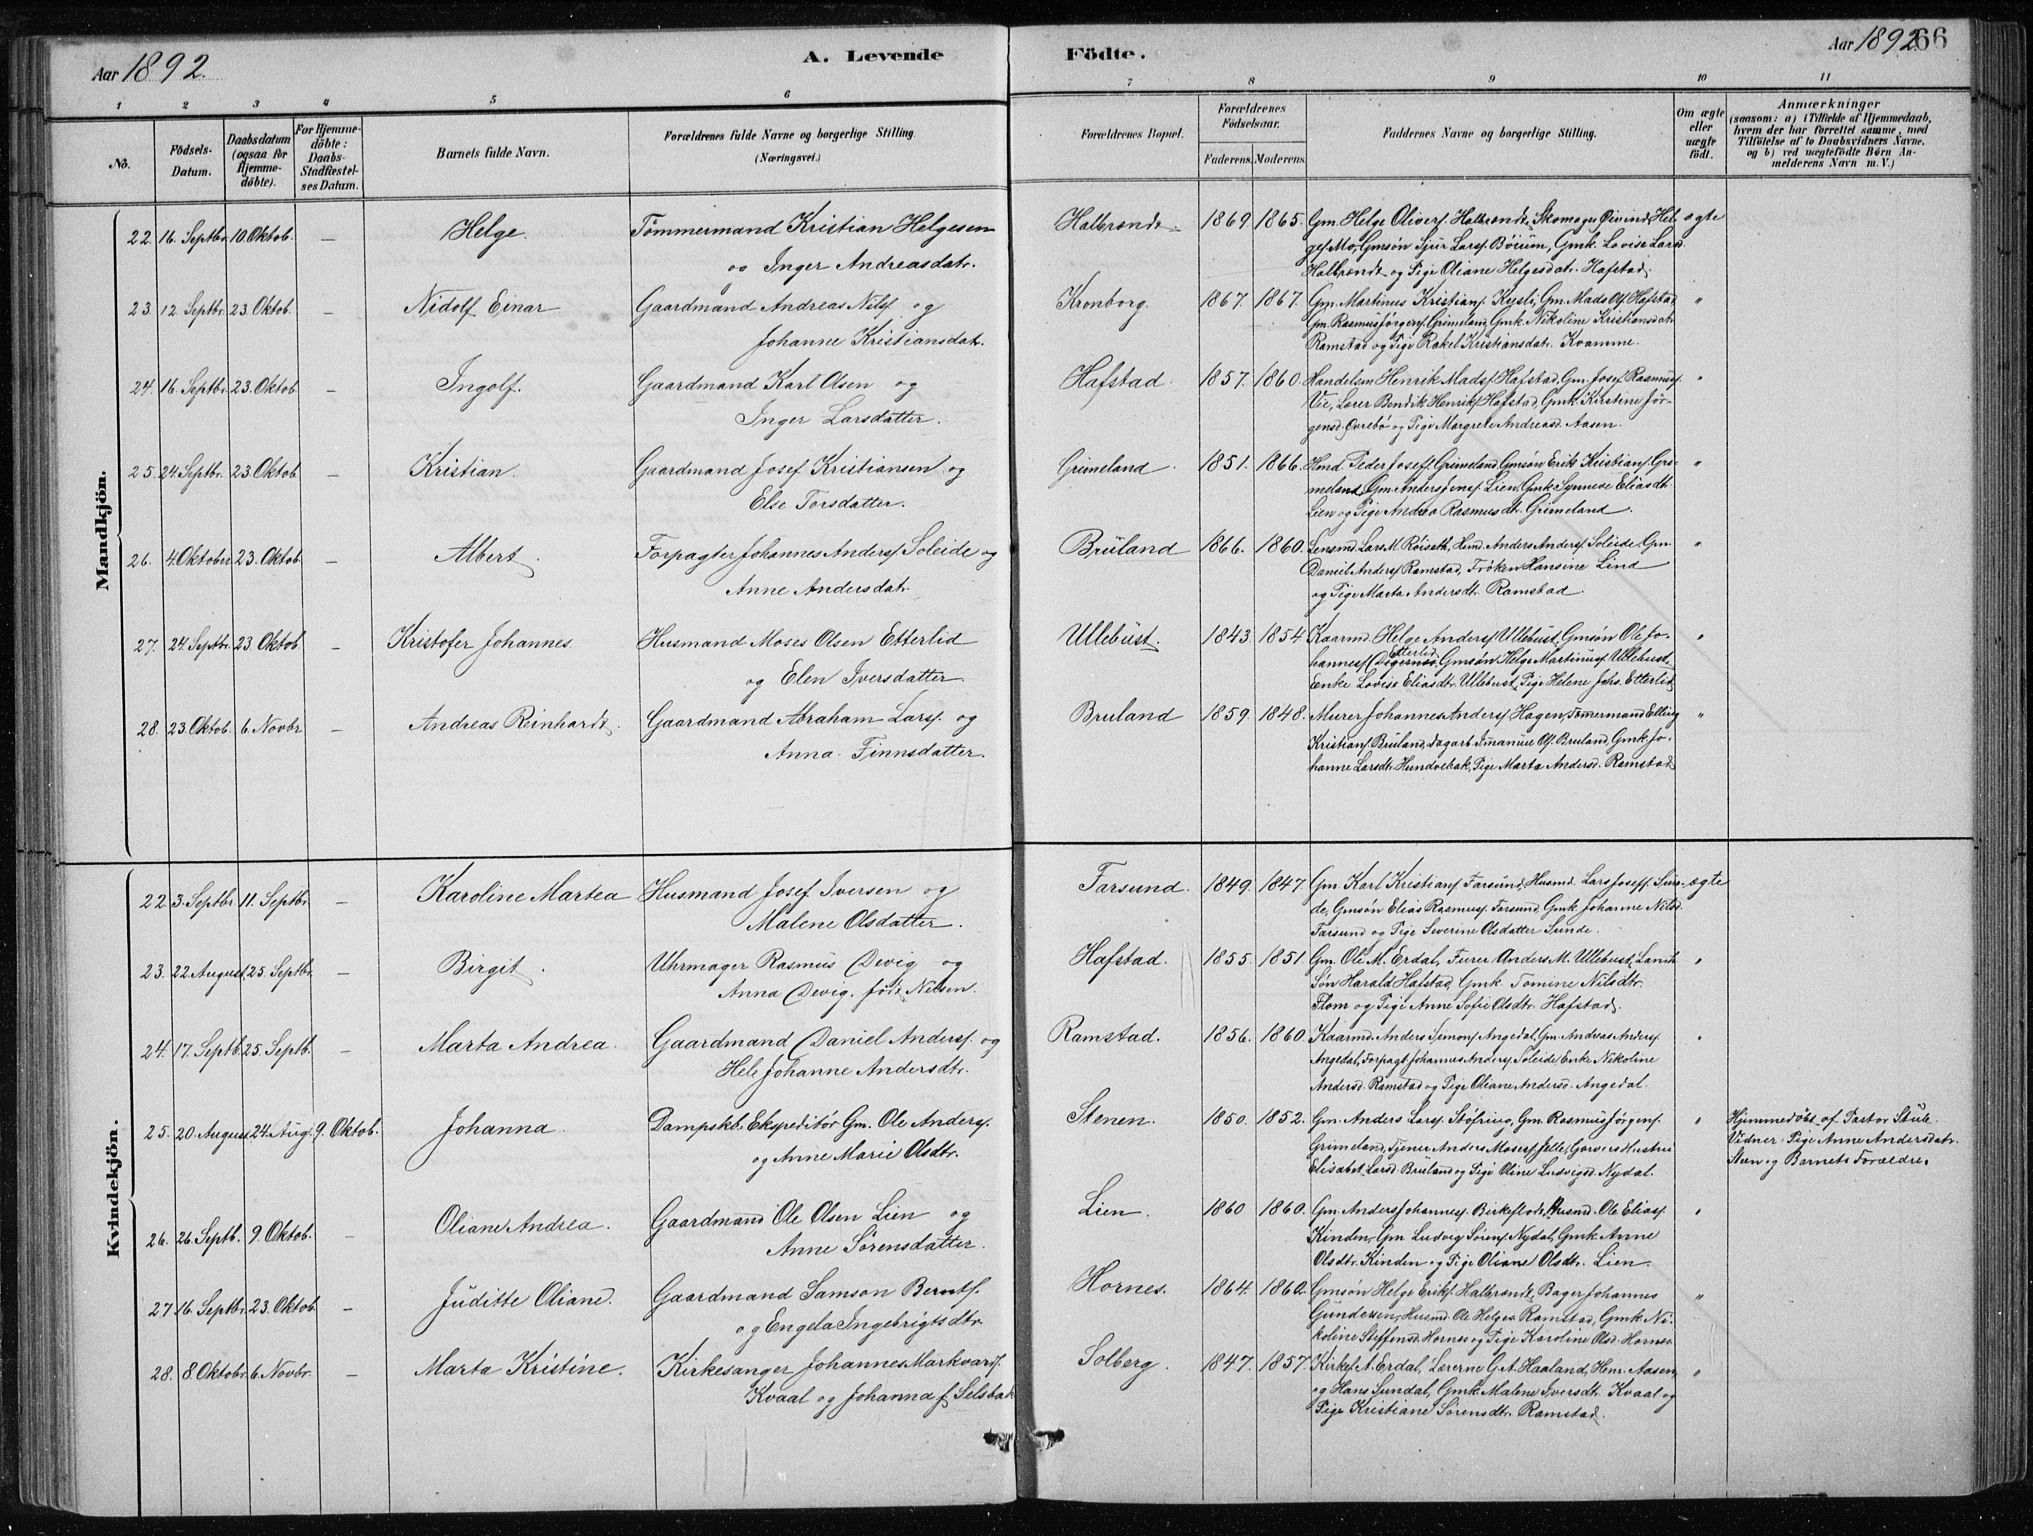 Aar 1892.
A. Levende
Födte.
Aar 1892.
66
1 2 3 4 5 6 7 8 9 10 11
No.
Födsels-
Datum.
Daabsdatum
(ogsaa for
Hjemme-
döbte).
For Hjemme-
döbte:
Daabs-
Stadfæstel-
ses Datum.
Barnets fulde Navn.
Forældrenes fulde Navne og borgerlige Stilling.
(Næringsvei.)
Forældrenes Bopæl.
Forældrenes
Födselsaar.
Faderens.
Moderens.
Faddernes Navne og borgerlige Stilling.
Om ægte
eller
uægte
födt.
Anmærkninger
(saasom: a) i Tilfælde af Hjemmedaab,
hvem der har forrettet samme, med
Tilföielse af to Daabsvidners Navne,
og b) ved uægtefödte Börn An-
melderens Navn m. V.)
Mandkjön.
22. 16. Septbr. 10. Oktob. — Helge. Tømmermand Kristian Helgesen
og Inger Andreasdatr.
Halbrændt. 1869. 1865. Gm. Helge Olivers. Halbrændt, Skomager Øivind Hel-
ges. Mo, Gmsøn Sjur Lars. Böium, Gmk. Lovise Larsd.
Halbrændt og Pige Oliane Helgesdatr. Hafstad.
ægte
23. 12. Septbr. 23. Oktob. — Nidolf Einar Gaardmand Andreas Nils. og
Johanne Kristiansdat.
Kronborg. 1867. 1867. Gm. Martinus Kristians. Kysli, Gm. Mads Ols. Hafstad
Gm. Rasmus Jørgens. Grimeland, Gmk. Nikoline Kristiansdatr.
Ramstad og Pige Rakel Kristiansdatr. Kvamme.
"
24. 16. Septbr. 23. Oktob. — Ingolf. Gaardmand Karl Olsen og
Inger Larsdatter.
Hafstad. 1857. 1860. Handelsm Henrik Mads. Hafstad, Gm. Josef Rasmus.
Vie, Lærer Bendik Henriks. Hafstad, Gmk. Kirstine Jör-
gensd. Øvrebö og Pige Margrete Andreasd. Aasen.
"
25. 24. Septbr. 23. Oktob. — Kristian. Gaardmand Josef Kristiansen og
Else Torsdatter.
Grimeland. 1851. 1866. Hmd. Peder Josefs. Grimeland, Gmsøn Erik Kristians. Gri-
meland, Gm. Anders Jons. Lien, Gmk. Synneve Eliasdtr.
Lien og Pige Andrea Rasmusdtr. Grimeland.
"
26. 4. Oktober 23. Oktob. — Albert. Forpagter Johannes Anders. Soleide og
Anne Andersdatr.
Bruland 1866. 1860. Lensmd. Lars M. Röiseth, Hmd. Anders Anders. Soleide, Gm.
Daniel Anders. Ramstad, Fröken Hansine Lind
og Pige Marta Andersdtr. Ramstad.
"
27. 24. Septbr. 23. Oktob. — Kristofer Johannes. Husmand Moses Olsen Etterlid
og Elen Iversdatter.
Ullebust. 1843. 1854. Kaarmd. Helge Anders. Ullebust, Gmsøn Ole Jo-
hannes. Digernæs Etterlid, Gmsøn Helge Martinus. Ullebust,
Enke Lovise Eliasdtr. Ullebust, Pige Helene Johs. Etterlid.
"
28. 23. Oktob. 6. Novbr. — Andreas Reinhardt. Gaardmand Abraham Lars. og
Anna Finnsdatter.
Bruland 1859. 1848. Murer Johannes Anders. Hagen, Tømmermand Elling
Kristians. Bruland, Dagarb. Imanuel Ols. Bruland, Gmk. Jo-
hanne Larsdtr. Hundvebak, Pige Marta Andersd. Ramstad.
"
Kvindekjön.
22. 3. Septbr. 11. Septbr. — Karoline Martea Husmand Josef Iversen og
Malene Olsdatter.
Farsund. 1849. 1847. Gm. Karl Kristians. Farsund, Husmd. Lars Josefs. Sun-
de, Gmsøn Elias Rasmus. Farsund, Gmk. Johanne Nilsd.
Farsund og Pige Severine Olsdatter Sunde.
ægte
23. 22. August 25. Septbr. — Birgit. Uhrmager Rasmus Devig og
Anna Devig. födt Nilsen.
Hafstad. 1855. 1851. Gm. Ole M. Erdal, Furer Anders M. Ullebust, Landh.
Søn Harald Hafstad, Gmk. Tomine Nilsdtr.
Flom og Pige Anne Sofie Olsdtr. Hafstad.
"
24. 17. Septb. 25. Septb. — Marta Andrea. Gaardmand Daniel Anders. og
Hele Johanne Andersdtr.
Ramstad. 1856. 1860. Kaarmd. Anders Simons. Angedal, Gm. Andreas Anders.
Angedal, Forpagt. Johannes Anders. Soleide, Enke Nikoline
Andersd. Ramstad og Pige Oliane Andersd. Angedal.
"
25. 20. August 24. Aug. 9. Oktob. Johanna. Dampskb. Ekspeditör Gm. Ole Anders.
og Anne Marie Olsdtr.
Stenen. 1850. 1852. Gm. Anders Lars. Stöfring, Gm. Rasmus Jörgens.
Grimeland, Tjener Anders Moses. Jelle, Garvers Hustru
Elisabet Larsd. Bruland og Pige Oline Ludvigsd. Nydal.
"
Hjemmedöbt af Pastor Stub.
Vidner: Pige Anne Andersdatr.
Sten og Barnets Forældre.
26. 26. Septb. 9. Oktob. — Oliane Andrea. Gaardmand Ole Olsen Lien og
Anne Sørensdatter.
Lien. 1860 1860. Gm. Anders Johannes. Birkeflot, Husmd. Ole Elias.
Kinden, Gm. Ludvig Sörens. Nydal, Gmk. Anne
Olsdtr. Kinden og Pige Oliane Olsdtr. Lien.
"
27 16. Septbr. 23. Oktob. — Juditte Oliane. Gaardmand Samson Bernts.
og Engela Ingebrigtsdtr.
Hornes. 1864. 1860. Gmsøn Helge Eriks. Halbrændt, Bager Johannes
Gundersen, Husmd. Ole Helges. Ramstad, Gmk. Ni-
koline Steffensd. Hornes og Pige Karoline Olsd. Hornes
"
28. 8. Oktobr. 6. Novbr. — Marta Kristine. Kirkesanger Johannes Markvards.
Kvaal og Johanna f. Selsbak
Solberg. 1847. 1857. Kirkes. A. Erdal, Lærerne G. A. Haaland, Hen. Aasen,
og Hans Sundal, Gmk. Malene Iversdtr. Kvaal og
Pige Kristiane Sørensdtr. Ramstad.
"